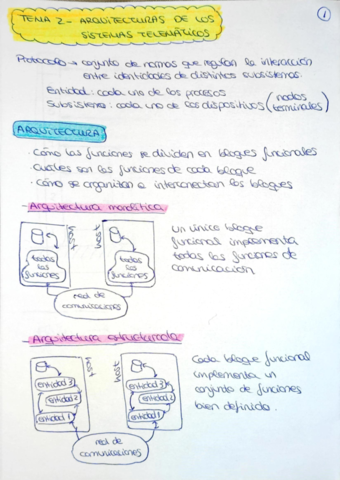 TEMA 2 - ARQUITECTURAS DE LOS
SISTEMAS TELEMÁTICOS
1
Protocolo → conjunto de normas que regulan la interacción
entre identidades de distintos subsistemas.
Entidad: cada uno de los procesos
Subsistema: cada uno de los dispositivos (nodos
terminales)
ARQUITECTURA:
· Cómo las funciones se dividen en bloques funcionales
· Cuáles son las funciones de cada bloque
· Cómo se organizan e interconectan los bloques
- Arquitectura monolítica
host
todas
las
funciones
host
todas
las
funciones
red de
comunicaciones
Un único bloque
funcional implementa
todas las funciones de
comunicación
- Arquitectura estructurada
host
entidad 3
entidad 2
entidad 1
host
entidad 3
entidad 2
entidad 1
red de
comunicaciones
Cada bloque funcional
implementa un
conjunto de funciones
bien definido.